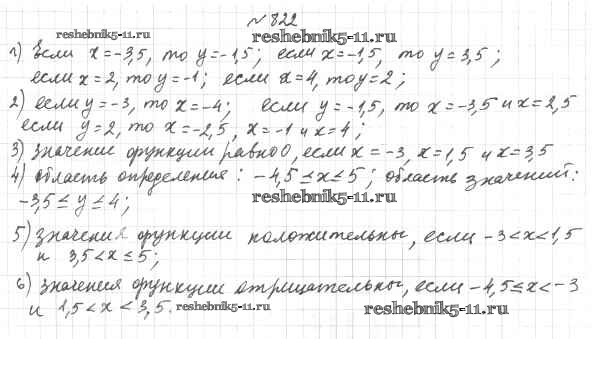 № 822
reshebnik5-11.ru reshebnik5-11.ru
1) Если x=-3,5, то y=-1,5; если x=-1,5, то y=3,5;
если x=2, то y=-1; если x=4, то y=2;
2) если y=-3, то x=-4; если y=-1,5, то x=-3,5 и x=2,5
если y=2, то x=-2,5, x=-1 и x=4;
3) Значение функции равно 0, если x=-3, x=1,5 и x=3,5
4) область определения: -4,5≤x≤5; область значений:
-3,5≤y≤4; reshebnik5-11.ru
5) значения функции положительны, если -3<x<1,5
и 3,5<x≤5;
6) значения функции отрицательны, если -4,5≤x<-3
и 1,5<x<3,5. reshebnik5-11.ru reshebnik5-11.ru